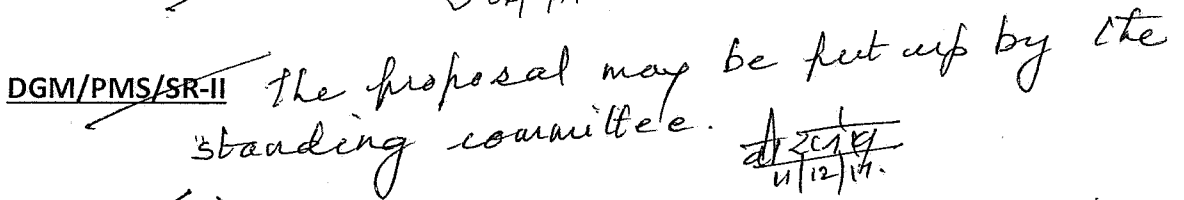 DGM/PMS/SR-II The proposal may be put up by the
standing committee.